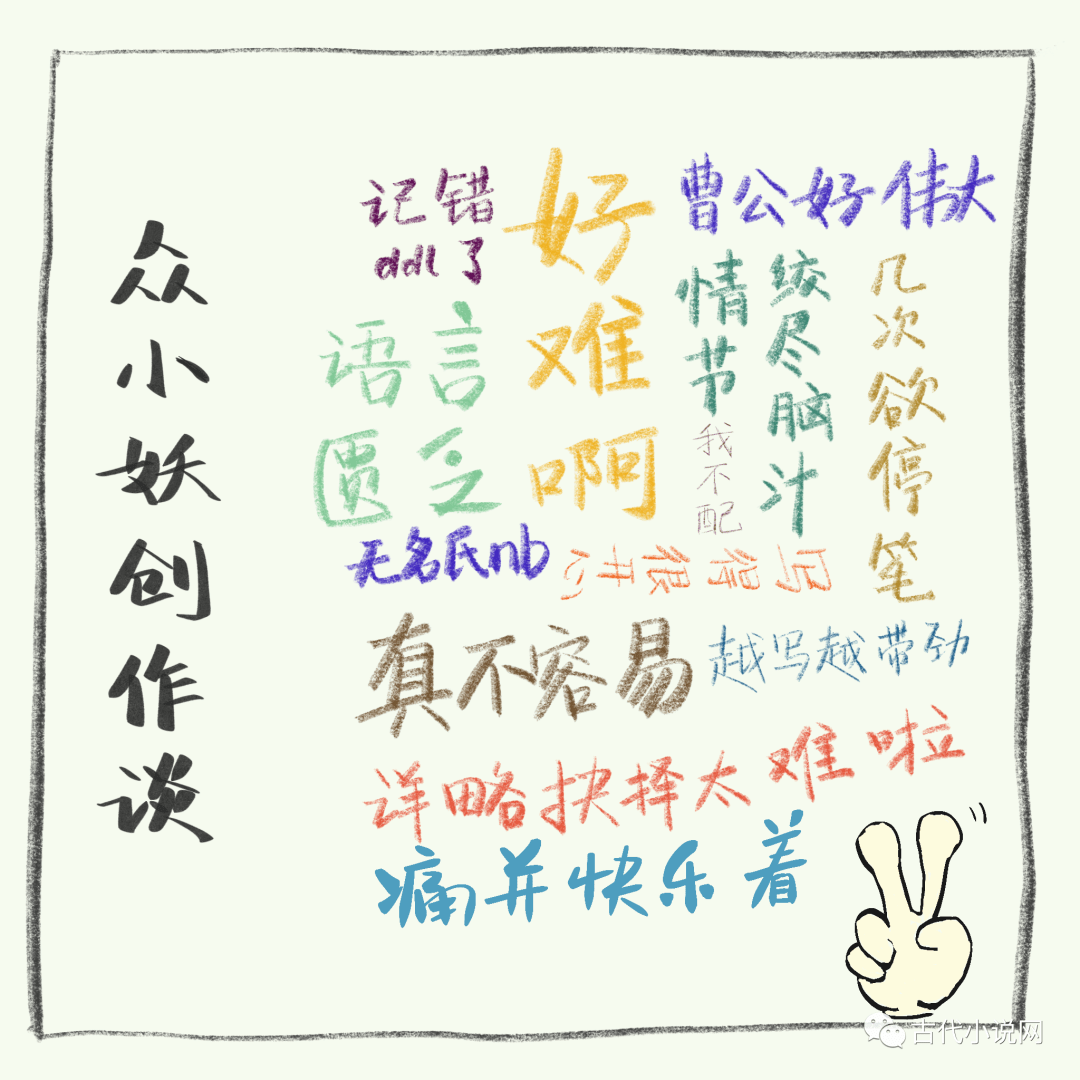 众小妖创作谈
记错
ddl了
好难啊
曹公好伟大
语言
匮乏
情节
我不配
绞尽脑汁
几次欲停笔
无名氏nb
写得很开心
真不容易
越写越带劲
详略抉择太难啦
痛并快乐着
古代小说网